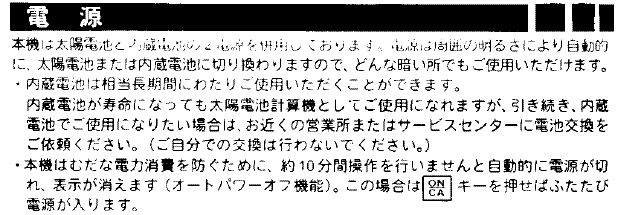 電源
本機は太陽電池と内蔵電池の2電源を併用しております。電源は周囲の明るさにより自動的
に、太陽電池または内蔵電池に切り換わりますので、どんな暗い所でもご使用いただけます。
・内蔵電池は相当長期間にわたりご使用いただくことができます。
内蔵電池が寿命になっても太陽電池計算機としてご使用になれますが、引き続き、内蔵
電池でご使用になりたい場合は、お近くの営業所またはサービスセンターに電池交換を
ご依頼ください。(ご自分での交換は行わないでください。)
・本機はむだな電力消費を防ぐために、約10分間操作を行いませんと自動的に電源が切
れ、表示が消えます(オートパワーオフ機能)。この場合は ON CA キーを押せばふたたび
電源が入ります。